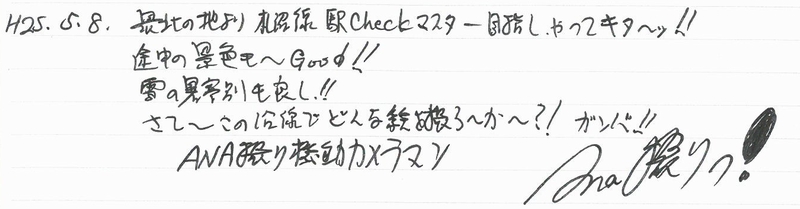 H25.5.8. 最北の地より 札沼線 駅Checkマスター目指し、やってキタ〜ッ!!
途中の景色も〜Good!!
雪の暑寒別も良し!!
さて〜この沿線でどんな絵を撮ろ〜か〜?! ガンバ!!
ANA撮り機動カメラマン
Ana撮りっ!